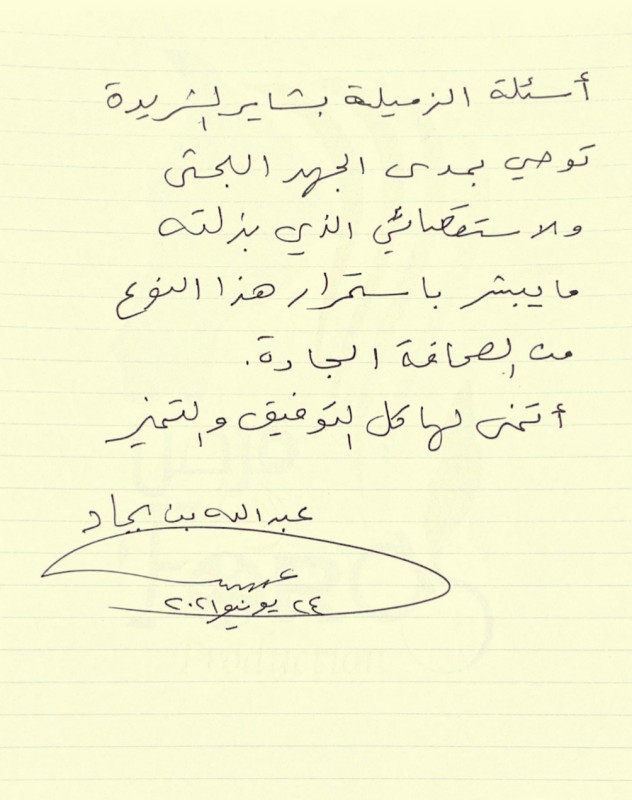 أسئلة الزميلة بشاير الشريدة
توحي بمدى الجهد البحثي
والاستقصائي الذي بذلته
ما يبشر باستمرار هذا النوع
من الصحافة الجادة.
أتمنى لها كل التوفيق والتميز
عبدالله بن بجاد
٢٤ يونيو ٢٠٢١
Production